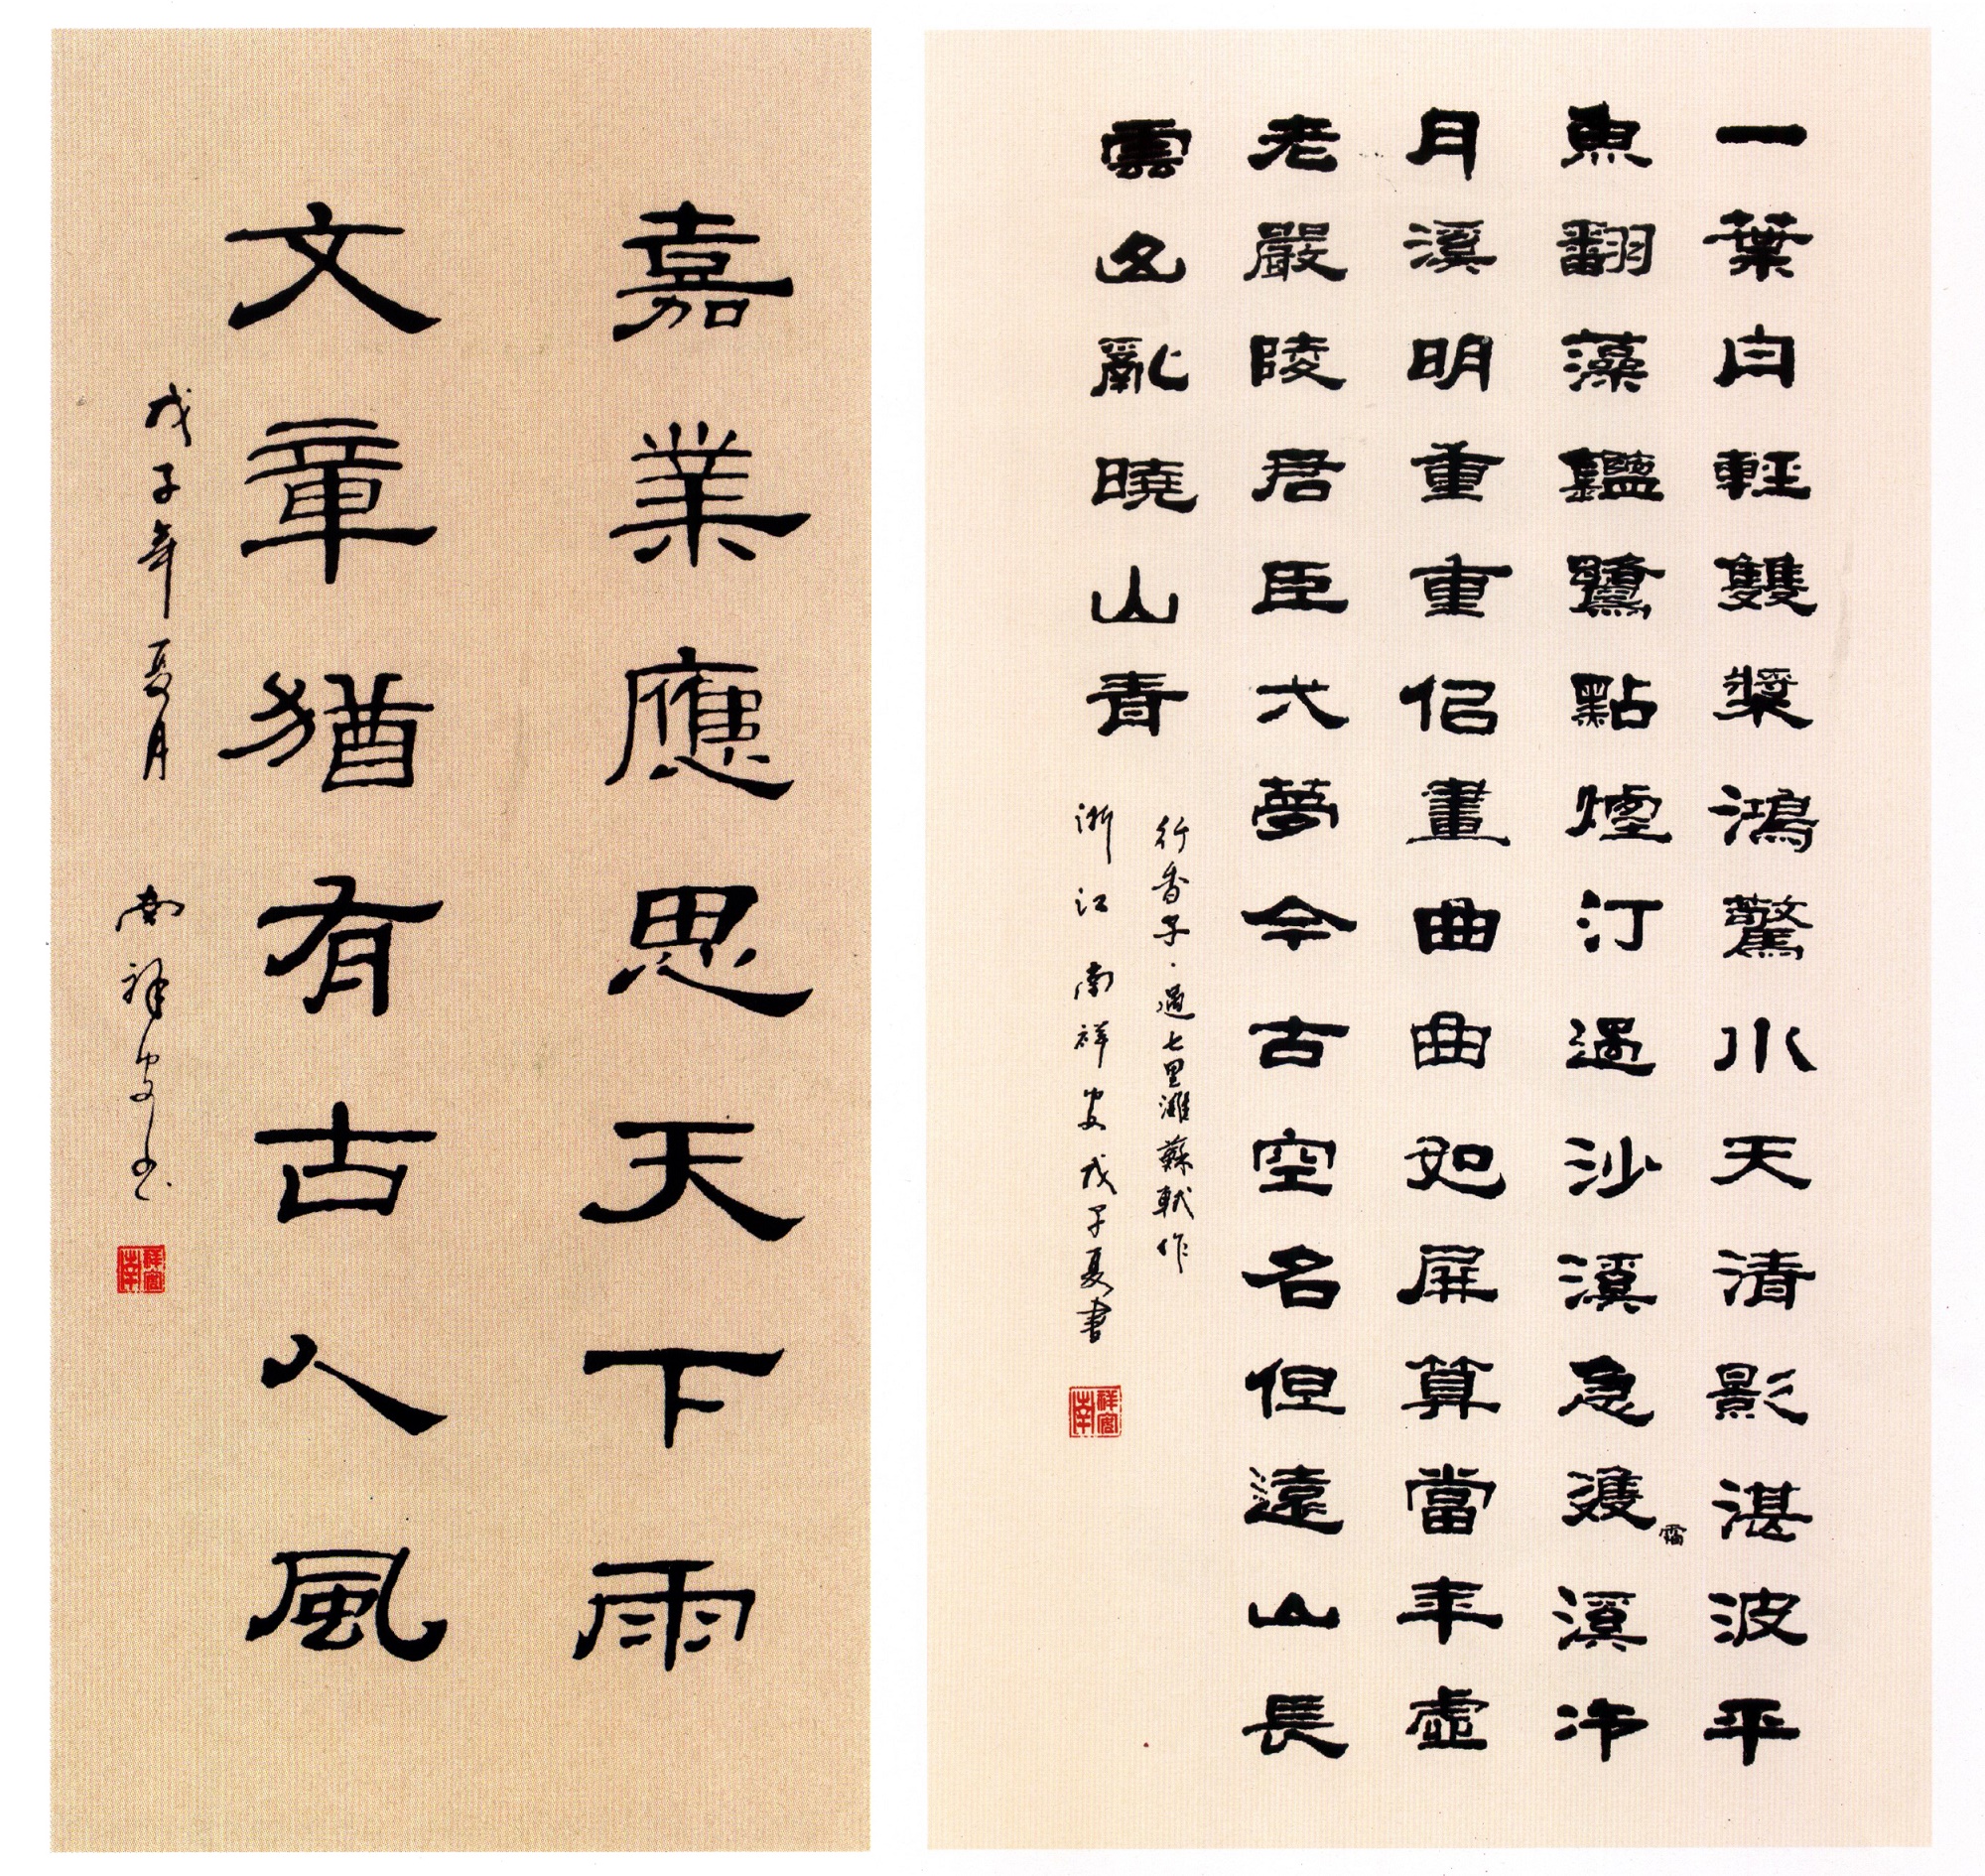 一葉舟輕雙槳鴻驚水天清影湛波平
魚翻藻鑑鷺點煙汀過沙溪急霜溪冷
月溪明重重似畫曲曲如屏算當年虛
老嚴陵君臣一夢今古空名但遠山長
雲山亂曉山青
行香子·過七里灘蘇軾作
浙江南祥戊子夏書
嘉業應思天下雨
文章猶有古人風
戊子年夏月南祥書